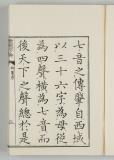 七音之傳肇自西域
以三十六字為母從
為四聲横為七音而
後天下之聲總於是